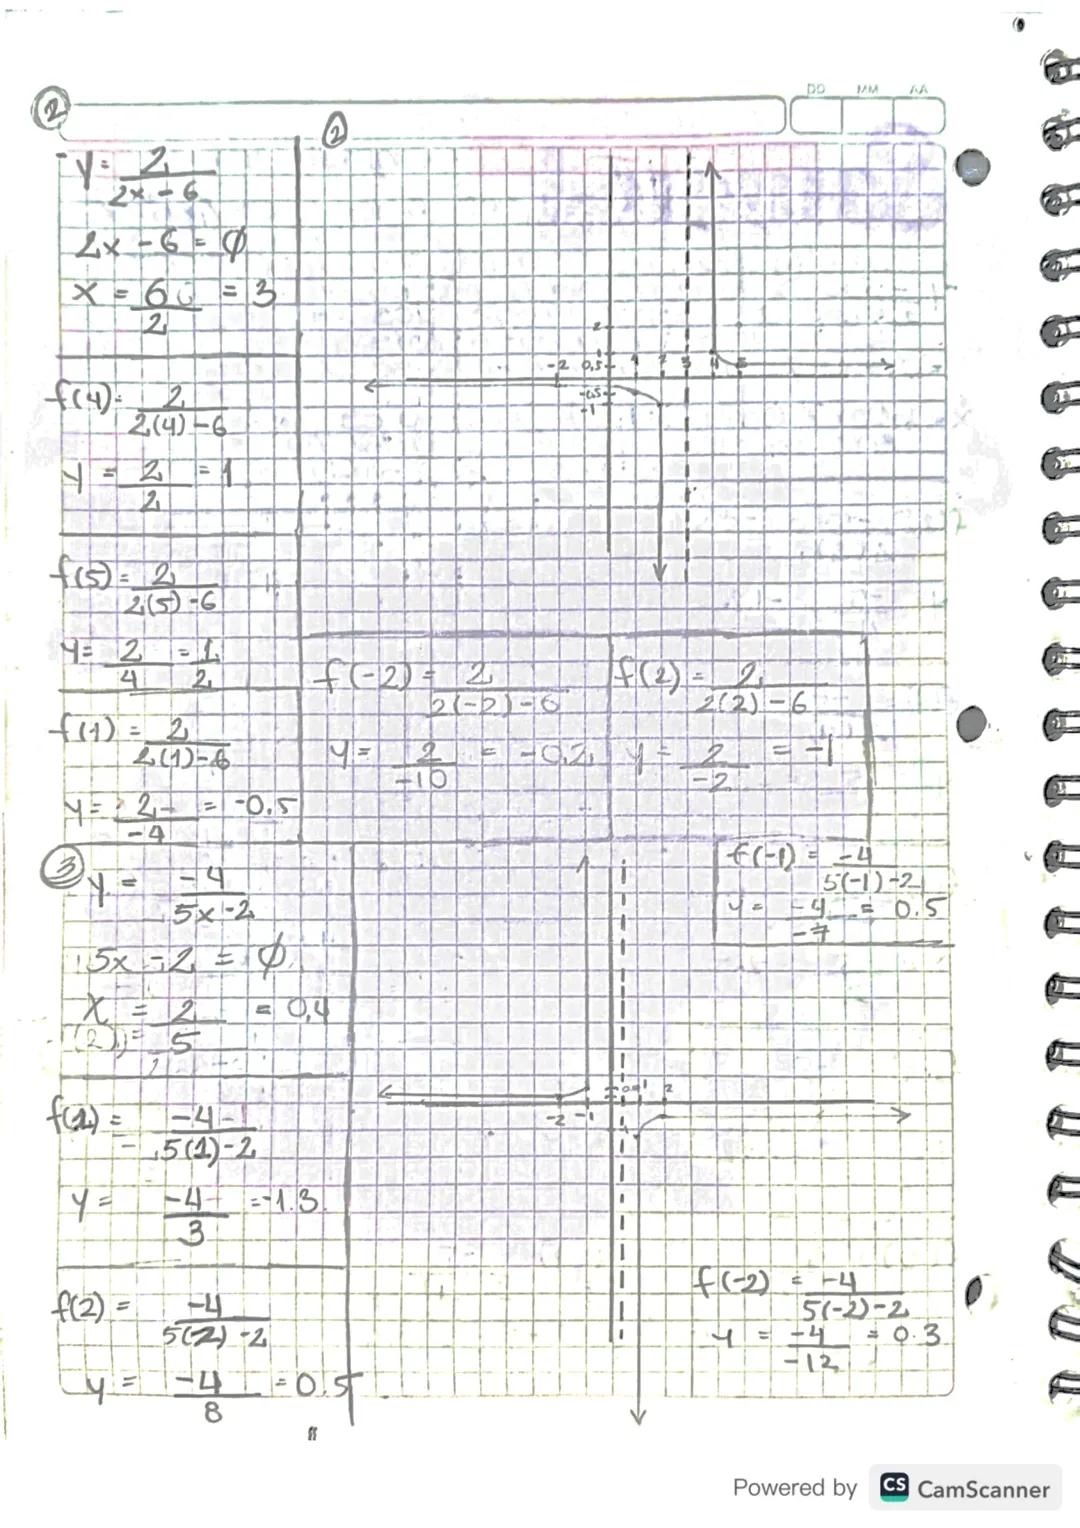 DD MM AA
2
2
y = 2 / 2x - 6
2x - 6 = Ø
x = 6 / 2 = 3
f(4) = 2 / 2(4) - 6
y = 2 / 2 = 1
f(5) = 2 / 2(5) - 6
y = 2 / 4 = 1 / 2
f(1) = 2 / 2(1) - 6
y = 2 / -4 = -0.5
2
1
-2 0,5 1 2 3 4 5
-0.5
-1
f(-2) = 2 / 2(-2) - 6
y = 2 / -10 = -0.2
f(2) = 2 / 2(2) - 6
y = 2 / -2 = -1
3
y = -4 / 5x - 2
5x - 2 = Ø
x = 2 / 5 = 0,4
f(1) = -4 / 5(1) - 2
y = -4 / 3 = -1.3
f(2) = -4 / 5(2) - 2
y = -4 / 8 = 0.5
f(-1) = -4 / 5(-1) - 2
y = -4 / -7 = 0.5
-2 -1 1 2
f(-2) = -4 / 5(-2) - 2
y = -4 / -12 = 0.3
Powered by CS CamScanner